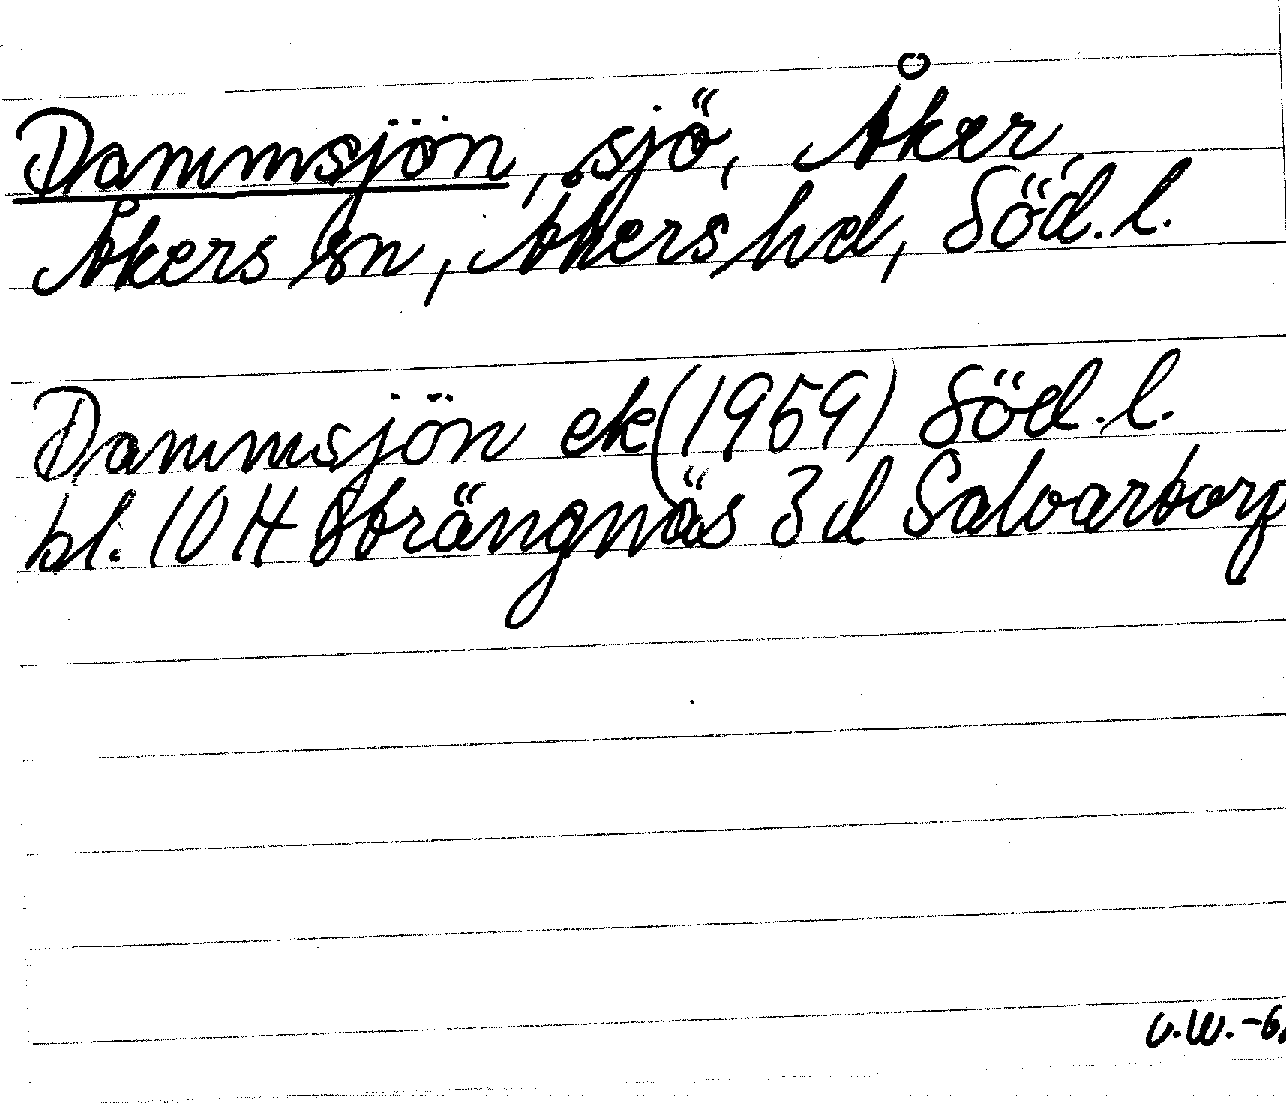 Dammsjön, sjö, Åker,
Åkers sn, Åkers hd, Söd. l.
Dammsjön ek (1959) Söd. l.
bl. 10 H Strängnäs 3 d Salvartorp